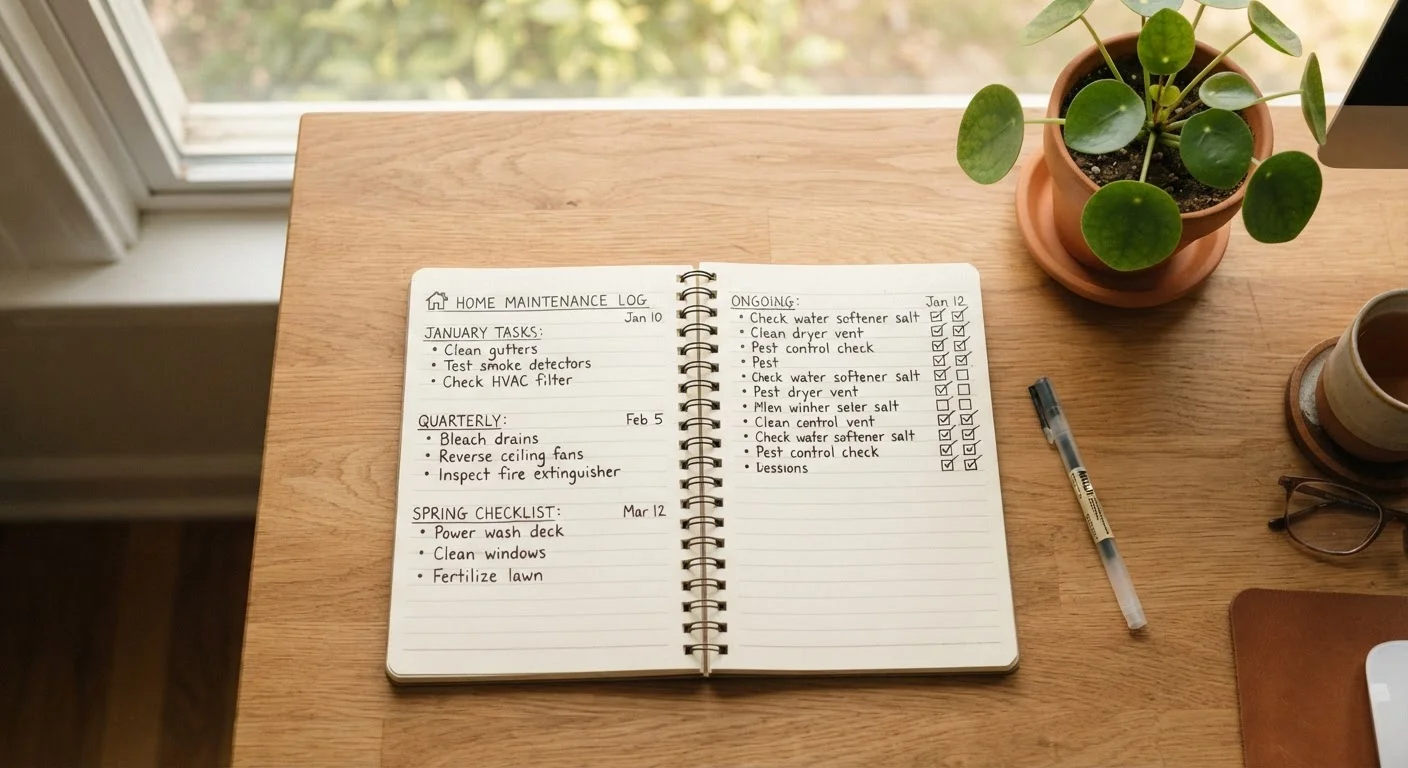 HOME MAINTENANCE LOG
Jan 10
JANUARY TASKS:
• Clean gutters
• Test smoke detectors
• Check HVAC filter
QUARTERLY: Feb 5
• Bleach drains
• Reverse ceiling fans
• Inspect fire extinguisher
SPRING CHECKLIST: Mar 12
• Power wash deck
• Clean windows
• Fertilize lawn
ONGOING: Jan 12
• Check water softener salt
• Clean dryer vent
• Pest control check
• Pest
• Check water softener salt
• Pest dryer vent
• Mlen winher seler salt
• Clean control vent
• Check water softener salt
• Pest control check